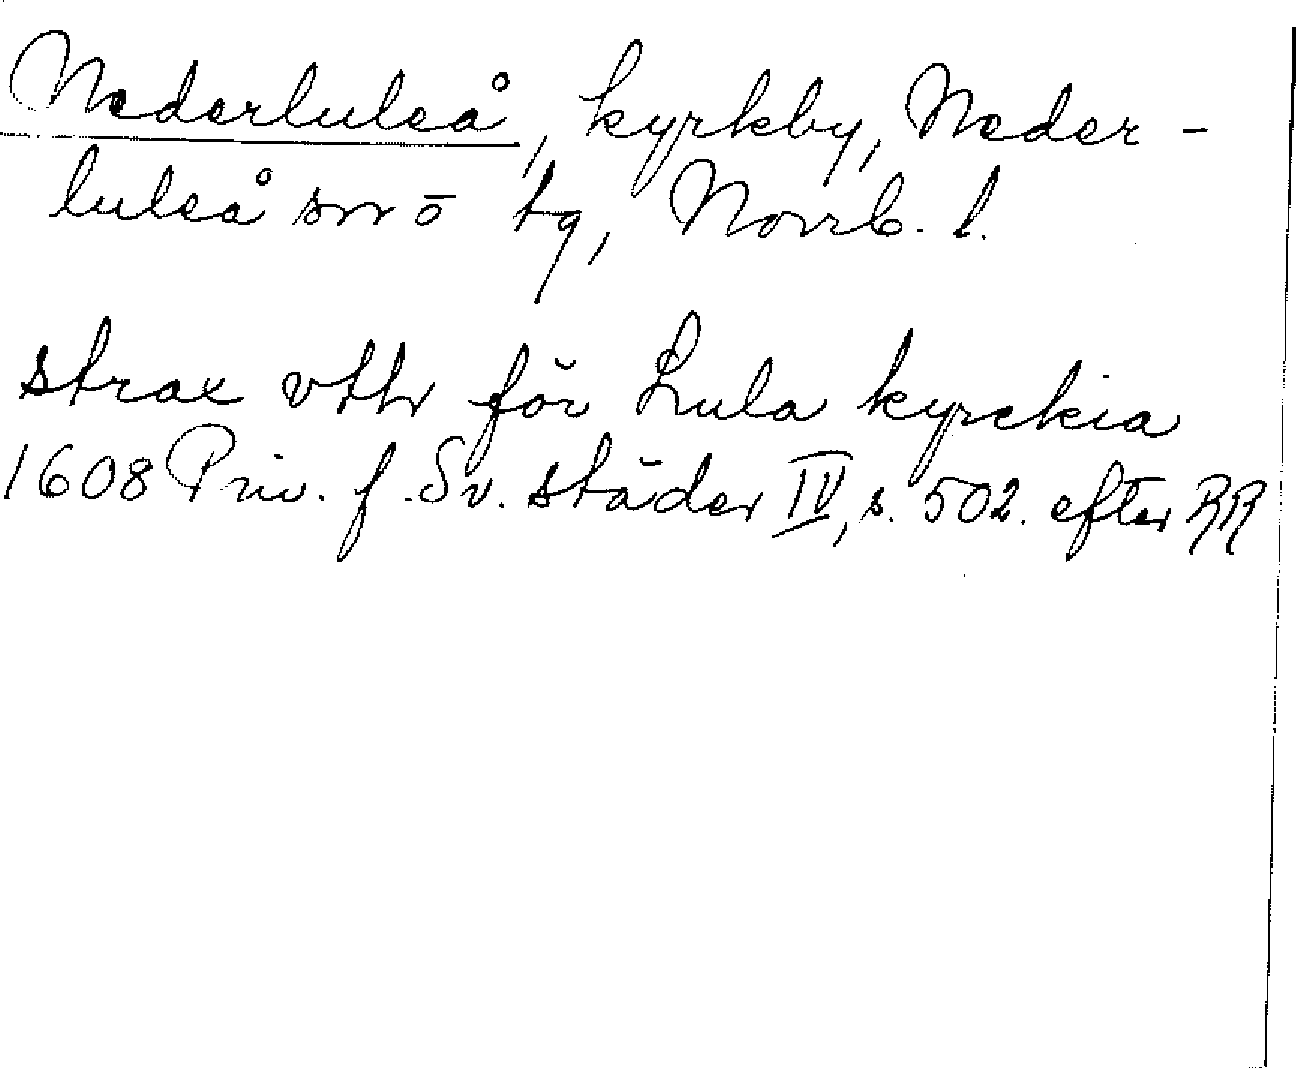 Nederluleå, kyrkby, Neder-
luleå sn o tg, Norrb. l.
strax vthr för Lula kyrckia
1608 Priv. f. Sv. städer IV, s. 502. efter RR